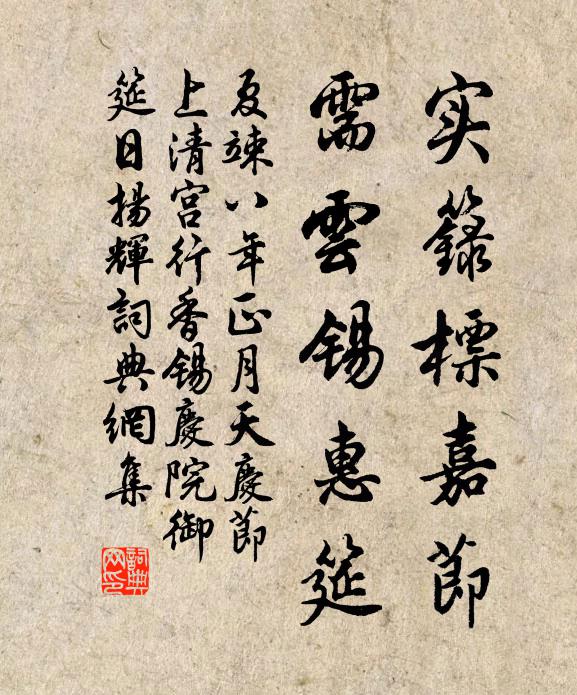 实籙標嘉節
需雲錫惠筵
夏竦八年正月天慶節
上清宮行香錫慶院御
筵日揚輝詞典網集
詞典网印